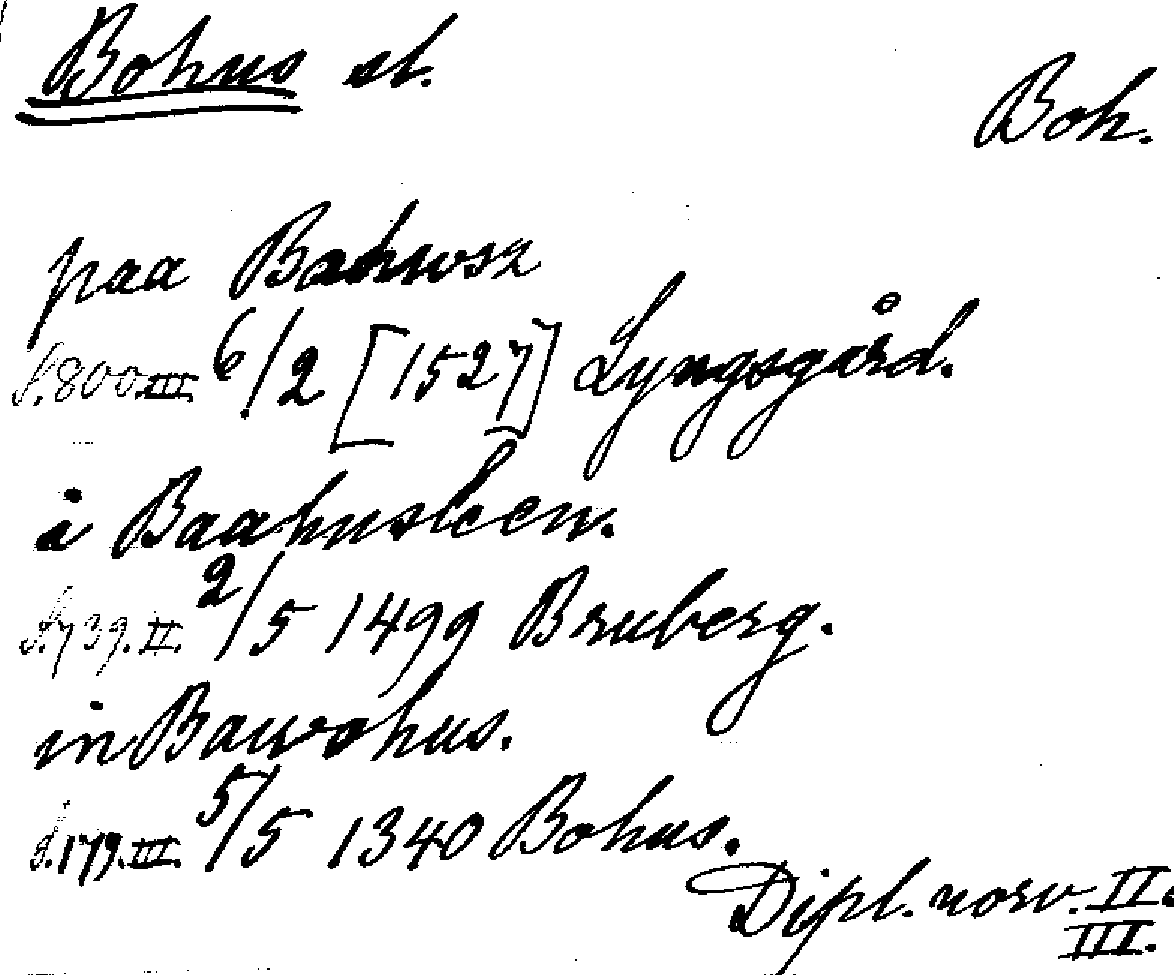 Bohus sl.
Boh.
paa Bahwsz
S. 800 III 6/2 [1527] Lyngsgård.
å Baahusleen.
S. 739. II. 2/5 1499 Bruberg.
in Bawohus.
S. 179. III. 5/5 1340 Bohus.
Dipl. norv. II.
III.